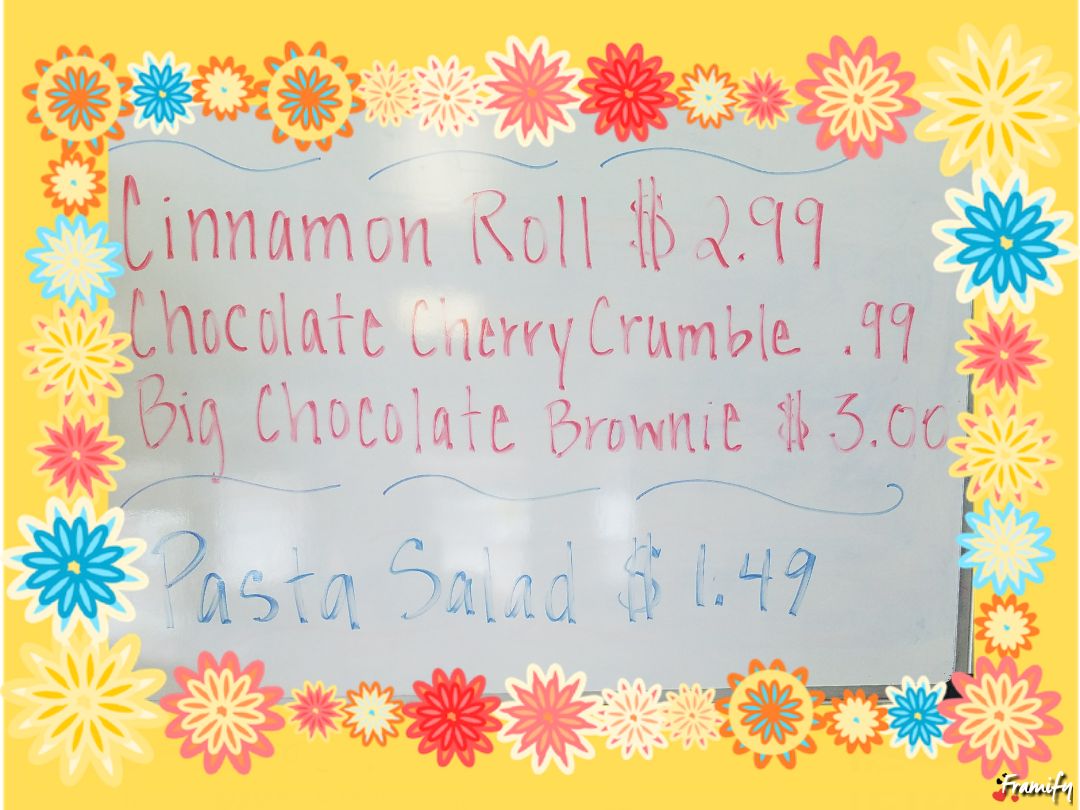 Cinnamon Roll $2.99
Chocolate Cherry Crumble .99
Big Chocolate Brownie $3.00
Pasta Salad $1.49
Framify